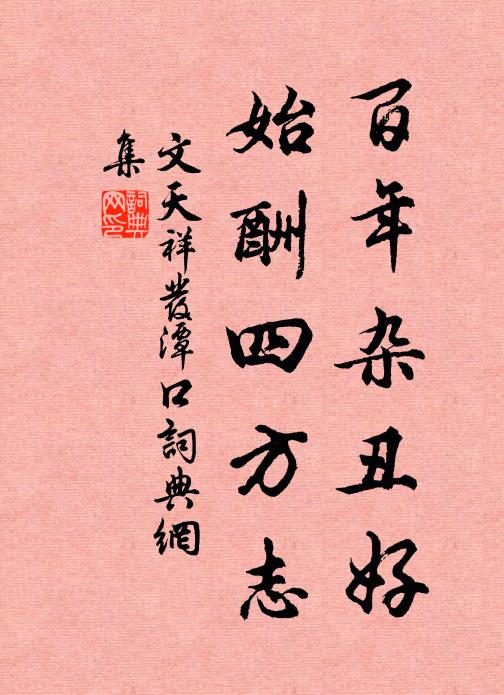 百年杂丑好
始酬四方志
文天祥發潭口詞典網
集
詞典网印